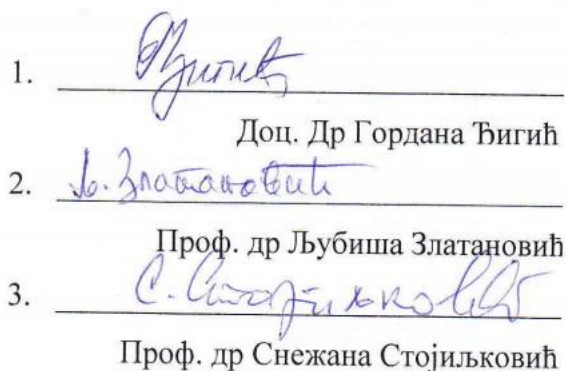 1.
Доц. Др Гордана Ђигић
2. Љ. Златановић
Проф. др Љубиша Златановић
3. С. Стојиљковић
Проф. др Снежана Стојиљковић